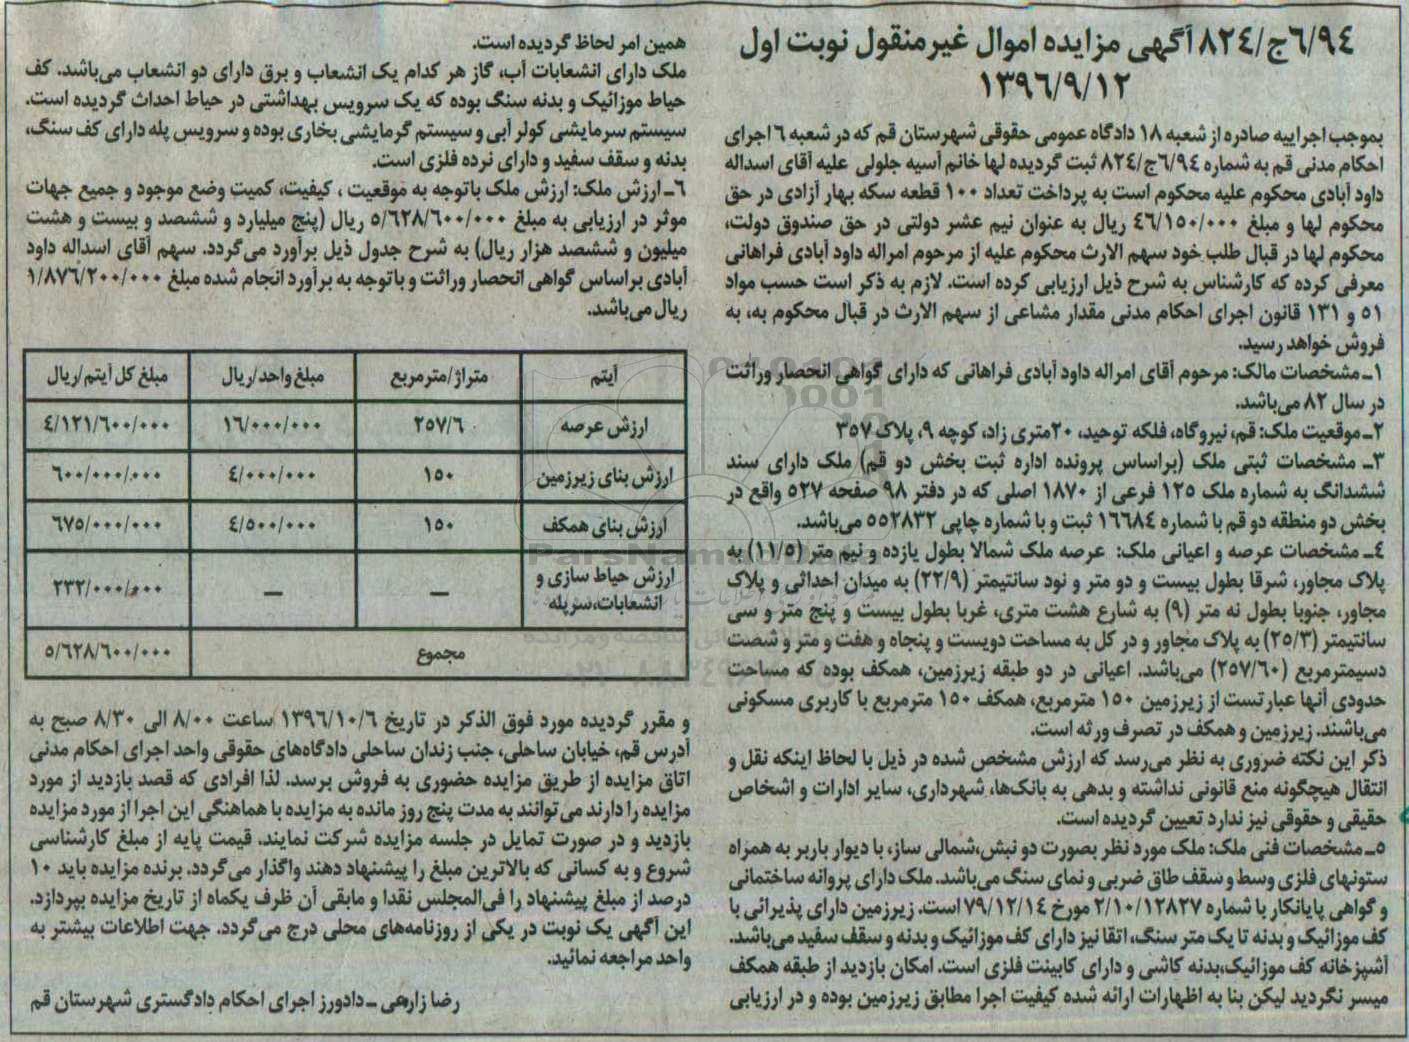 ۸۲٤/ج٦/۹٤ آگهی مزایده اموال غیرمنقول نوبت اول
۱۳۹٦/۹/۱۲
بموجب اجراییه صادره از شعبه ۱۸ دادگاه عمومی حقوقی شهرستان قم که در شعبه ٦ اجرای
احکام مدنی قم به شماره ۸۲٤/ج٦/۹٤ ثبت گردیده لها خانم آسیه جلولی علیه آقای اسداله
داود آبادی محکوم علیه محکوم است به پرداخت تعداد ۱۰۰ قطعه سکه بهار آزادی در حق
محکوم لها و مبلغ ٤٦/۱۵۰/۰۰۰ ریال به عنوان نیم عشر دولتی در حق صندوق دولت،
محکوم لها در قبال طلب خود سهم الارث محکوم علیه از مرحوم امراله داود آبادی فراهانی
معرفی کرده که کارشناس به شرح ذیل ارزیابی کرده است. لازم به ذکر است حسب مواد
۵۱ و ۱۳۱ قانون اجرای احکام مدنی مقدار مشاعی از سهم الارث در قبال محکوم به، به
فروش خواهد رسید.
۱ـ مشخصات مالک: مرحوم آقای امراله داود آبادی فراهانی که دارای گواهی انحصار وراثت
در سال ۸۲ می‌باشد.
۲ـ موقعیت ملک: قم، نیروگاه، فلکه توحید، ۲۰متری زاد، کوچه ۹، پلاک ۳۵۷
۳ـ مشخصات ثبتی ملک (براساس پرونده اداره ثبت بخش دو قم) ملک دارای سند
ششدانگ به شماره ملک ۱۲۵ فرعی از ۱۸۷۰ اصلی که در دفتر ۹۸ صفحه ۵۲۷ واقع در
بخش دو منطقه دو قم با شماره ۱٦٦۸٤ ثبت و با شماره چاپی ۵۵۲۸۳۲ می‌باشد.
٤ـ مشخصات عرصه و اعیانی ملک: عرصه ملک شمالا بطول یازده و نیم متر (۱۱/۵) به
پلاک مجاور، شرقا بطول بیست و دو متر و نود سانتیمتر (۲۲/۹) به میدان احداثی و پلاک
مجاور، جنوبا بطول نه متر (۹) به شارع هشت متری، غربا بطول بیست و پنج متر و سی
سانتیمتر (۲۵/۳) به پلاک مجاور و در کل به مساحت دویست و پنجاه و هفت و متر و شصت
دسیمترمربع (۲۵۷/٦۰) می‌باشد. اعیانی در دو طبقه زیرزمین، همکف بوده که مساحت
حدودی آنها عبارتست از زیرزمین ۱۵۰ مترمربع، همکف ۱۵۰ مترمربع با کاربری مسکونی
می‌باشند. زیرزمین و همکف در تصرف ورثه است.
ذکر این نکته ضروری به نظر می‌رسد که ارزش مشخص شده در ذیل با لحاظ اینکه نقل و
انتقال هیچگونه منع قانونی نداشته و بدهی به بانک‌ها، شهرداری، سایر ادارات و اشخاص
حقیقی و حقوقی نیز ندارد تعیین گردیده است.
۵ـ مشخصات فنی ملک: ملک مورد نظر بصورت دو نبش،شمالی ساز، با دیوار باربر به همراه
ستونهای فلزی وسط و سقف طاق ضربی و نمای سنگ می‌باشد. ملک دارای پروانه ساختمانی
و گواهی پایانکار با شماره ۲/۱۰/۱۲۸۲۷ مورخ ۷۹/۱۲/۱٤ است. زیرزمین دارای پذیرائی با
کف موزائیک و بدنه تا یک متر سنگ، اتقا نیز دارای کف موزائیک و بدنه و سقف سفید می‌باشد.
آشپزخانه کف موزائیک،بدنه کاشی و دارای کابینت فلزی است. امکان بازدید از طبقه همکف
میسر نگردید لیکن بنا به اظهارات ارائه شده کیفیت اجرا مطابق زیرزمین بوده و در ارزیابی
همین امر لحاظ گردیده است.
ملک دارای انشعابات آب، گاز هر کدام یک انشعاب و برق دارای دو انشعاب می‌باشد. کف
حیاط موزائیک و بدنه سنگ بوده که یک سرویس بهداشتی در حیاط احداث گردیده است.
سیستم سرمایشی کولر آبی و سیستم گرمایشی بخاری بوده و سرویس پله دارای کف سنگ،
بدنه و سقف سفید و دارای نرده فلزی است.
٦ـ ارزش ملک: ارزش ملک باتوجه به موقعیت ، کیفیت، کمیت وضع موجود و جمیع جهات
موثر در ارزیابی به مبلغ ۵/٦۲۸/٦۰۰/۰۰۰ ریال (پنج میلیارد و ششصد و بیست و هشت
میلیون و ششصد هزار ریال) به شرح جدول ذیل برآورد می‌گردد. سهم آقای اسداله داود
آبادی براساس گواهی انحصار وراثت و باتوجه به برآورد انجام شده مبلغ ۱/۸۷٦/۲۰۰/۰۰۰
ریال می‌باشد.
آیتم متراژ/مترمربع مبلغ واحد/ریال مبلغ کل آیتم/ریال
ارزش عرصه ۲۵۷/٦ ۱٦/۰۰۰/۰۰۰ ٤/۱۲۱/٦۰۰/۰۰۰
ارزش بنای زیرزمین ۱۵۰ ٤/۰۰۰/۰۰۰ ٦۰۰/۰۰۰/۰۰۰
ارزش بنای همکف ۱۵۰ ٤/۵۰۰/۰۰۰ ٦۷۵/۰۰۰/۰۰۰
ارزش حیاط سازی و
انشعابات،سرپله — — ۲۳۲/۰۰۰/۰۰۰
مجموع ۵/٦۲۸/٦۰۰/۰۰۰
و مقرر گردیده مورد فوق الذکر در تاریخ ۱۳۹٦/۱۰/٦ ساعت ۸/۰۰ الی ۸/۳۰ صبح به
آدرس قم، خیابان ساحلی، جنب زندان ساحلی دادگاه‌های حقوقی واحد اجرای احکام مدنی
اتاق مزایده از طریق مزایده حضوری به فروش برسد. لذا افرادی که قصد بازدید از مورد
مزایده را دارند می‌توانند به مدت پنج روز مانده به مزایده با هماهنگی این اجرا از مورد مزایده
بازدید و در صورت تمایل در جلسه مزایده شرکت نمایند. قیمت پایه از مبلغ کارشناسی
شروع و به کسانی که بالاترین مبلغ را پیشنهاد دهند واگذار می‌گردد. برنده مزایده باید ۱۰
درصد از مبلغ پیشنهاد را فی‌المجلس نقدا و مابقی آن ظرف یکماه از تاریخ مزایده بپردازد.
این آگهی یک نوبت در یکی از روزنامه‌های محلی درج می‌گردد. جهت اطلاعات بیشتر به
واحد مراجعه نمائید.
رضا زارعی ـ دادورز اجرای احکام دادگستری شهرستان قم